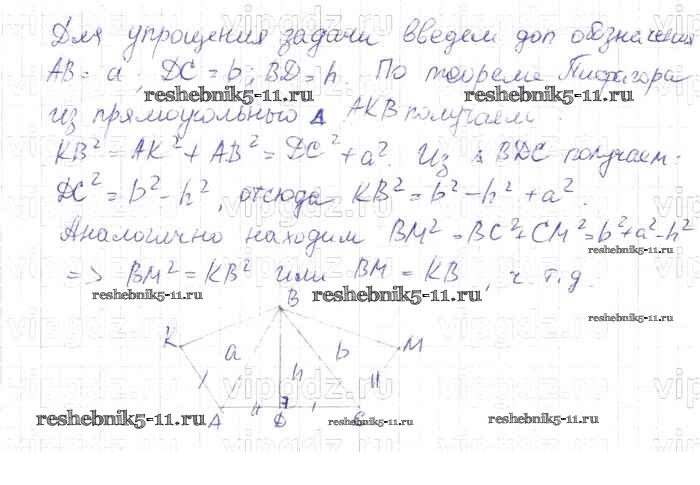 Для упрощения задачи введем доп обозначения
AB = a; DC = b; BD = h. По теореме Пифагора
reshebnik5-11.ru reshebnik5-11.ru
из прямоугольного Δ AKB получаем
KB² = AK² + AB² = DC² + a². Из Δ BDC получаем:
DC² = b² - h², отсюда KB² = b² - h² + a².
Аналогично находим BM² = BC² + CM² = b² + a² - h²
reshebnik5-11.ru
=> BM² = KB² или BM = KB, ч.т.д.
reshebnik5-11.ru reshebnik5-11.ru
B
reshebnik5-11.ru
K a b M
h
vipgdz.ru
reshebnik5-11.ru reshebnik5-11.ru reshebnik5-11.ru
A D C